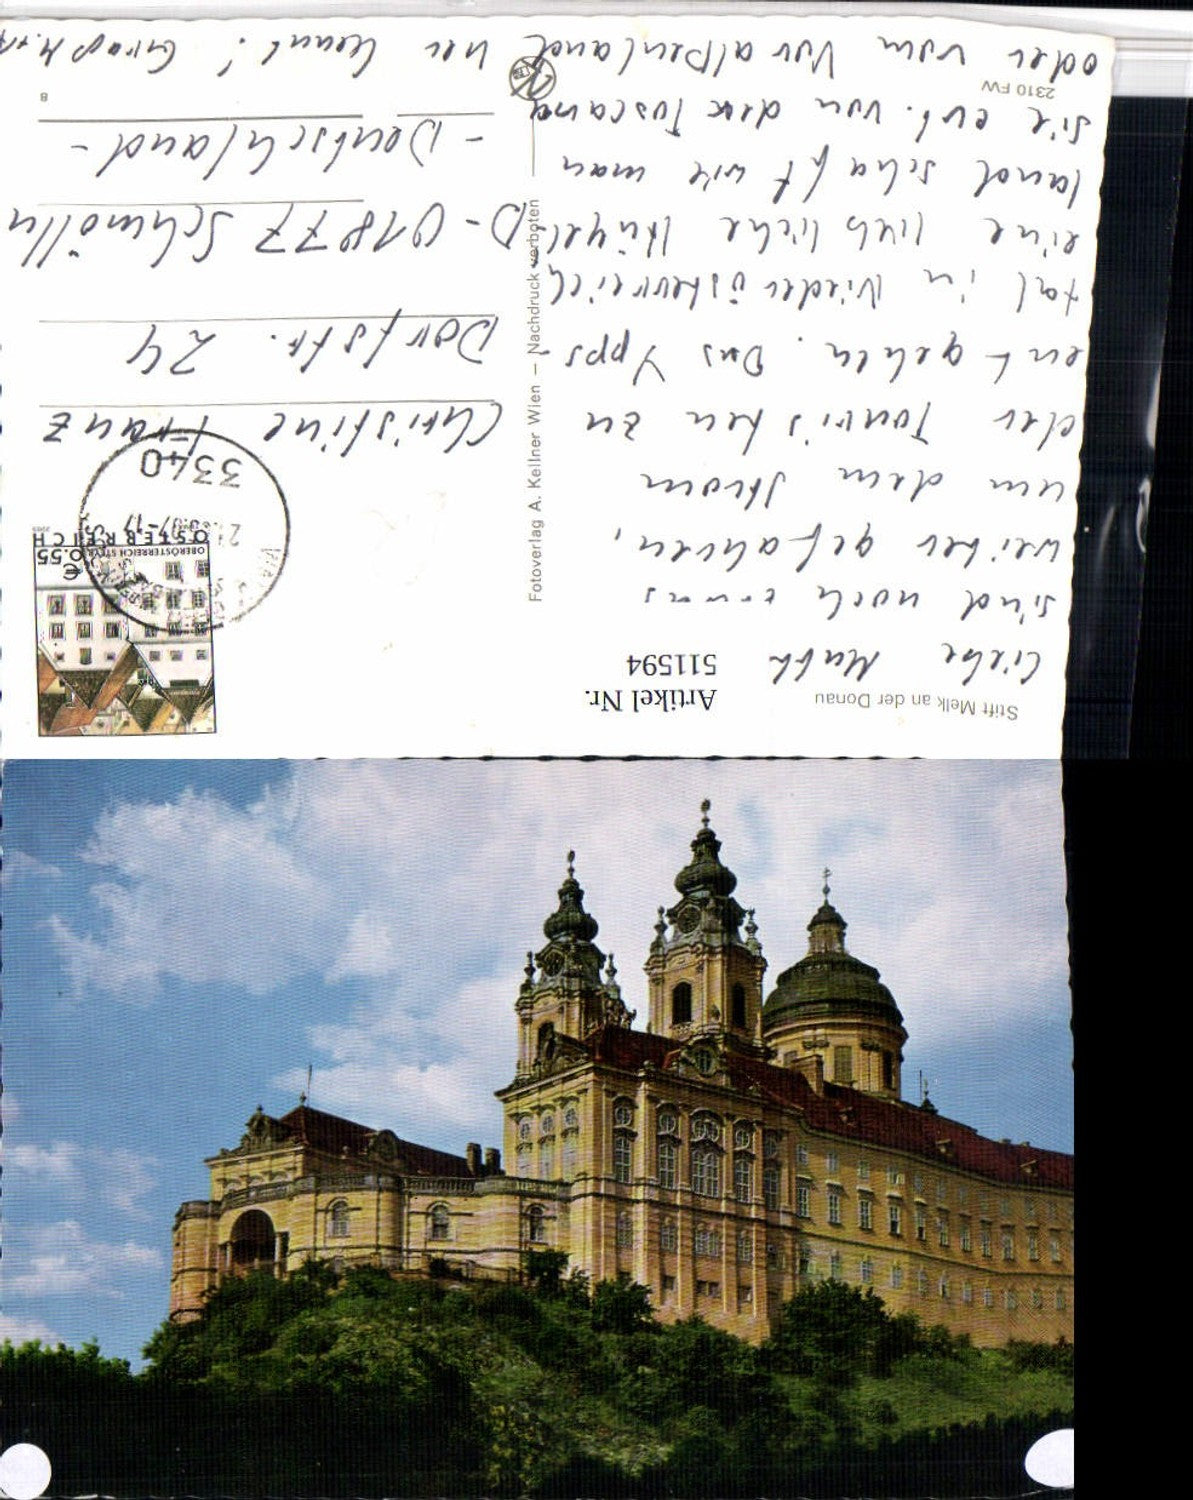 Stift Melk an der Donau
Artikel Nr.
511594
Liebe
sind noch etwas
weiter gefahren,
um dem Strom
der Touristen zu
entgehen. Das Ypps-
tal in Niederösterreich
eine liebliche Hügel
landschaft wie man
sie evt. von der Toscana
oder vom Voralpenland
her kennt!
2310 FW
Fotoverlag A. Kellner Wien — Nachdruck verboten
ÖSTERREICH
€ 0.55
OBERÖSTERREICH STEYR
3340
Christine Franz
Dorfstr. 24
D-01877 Schmölln
- Deutschland -
8